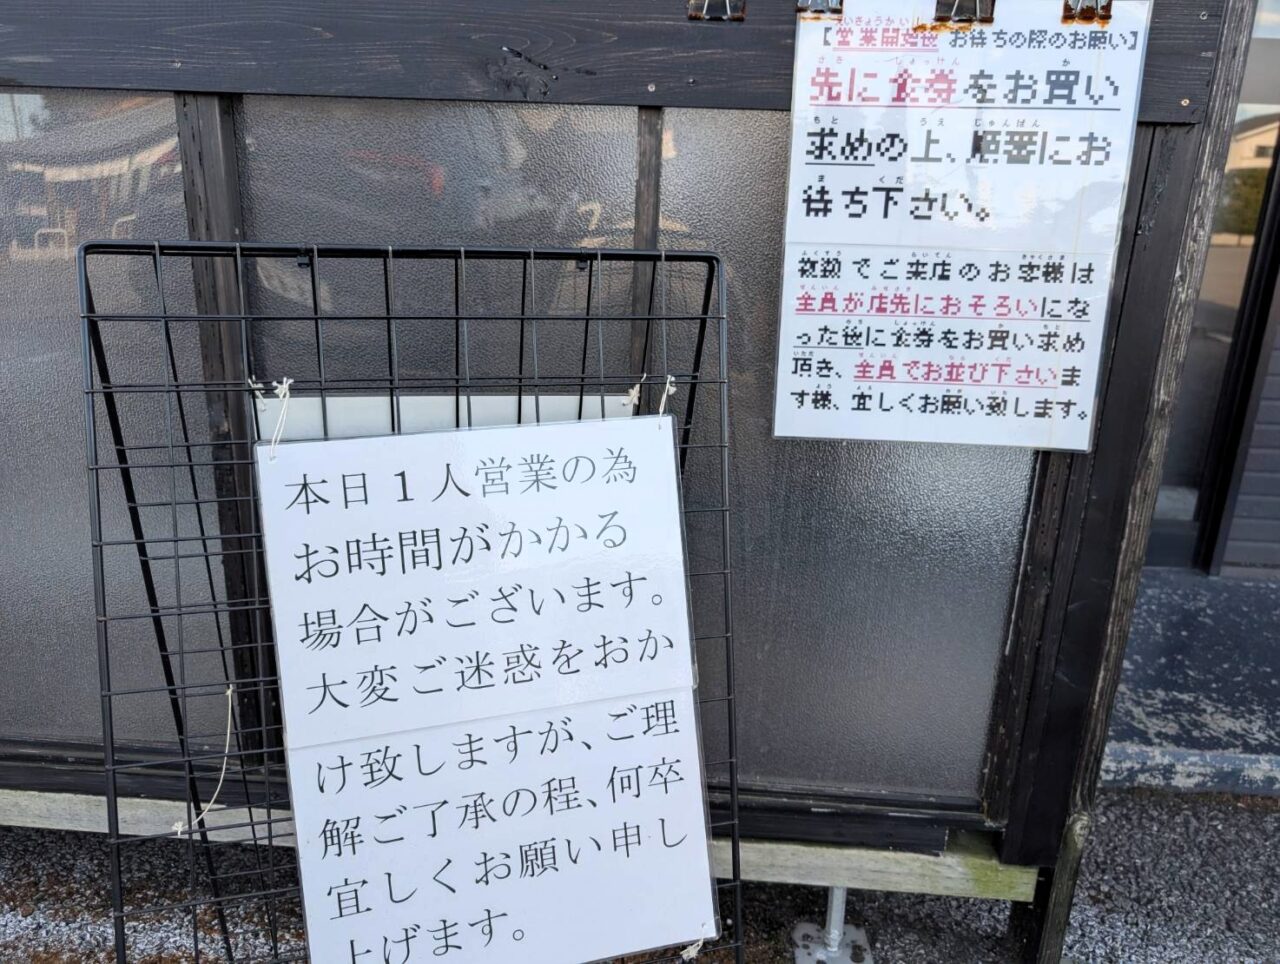 【営業開始後 お待ちの際のお願い】
先に食券をお買い
求めの上、順番にお
待ち下さい。
複数でご来店のお客様は
全員が店先におそろいにな
った後に食券をお買い求め
頂き、全員でお並び下さいま
す様、宜しくお願い致します。
本日1人営業の為
お時間がかかる
場合がございます。
大変ご迷惑をおか
け致しますが、ご理
解ご了承の程、何卒
宜しくお願い申し
上げます。